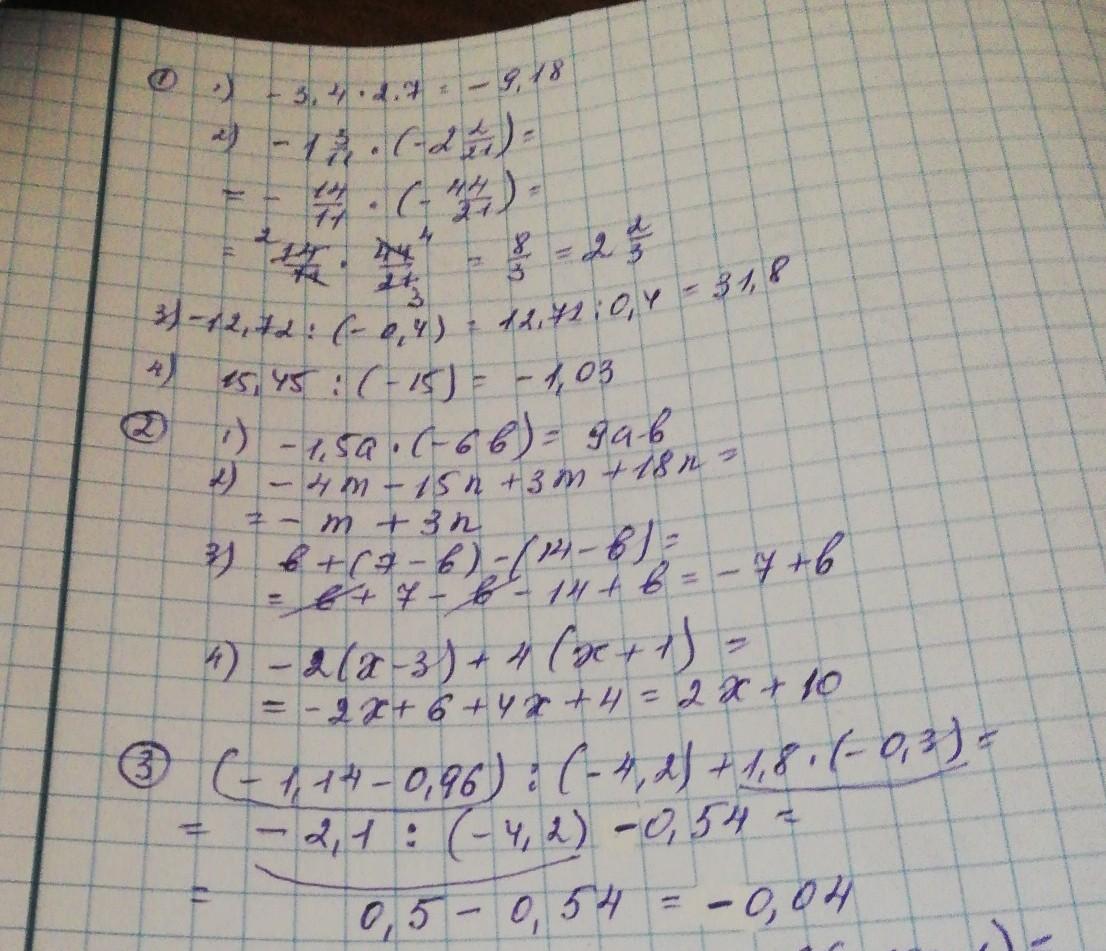 ① 1) - 3,4 · 2.7 = - 9,18
2) - 1 3/11 · (- 2 2/21) =
= - 14/11 · (- 44/21) =
= 2 14/11 · 44/21 4 3 = 8/3 = 2 2/3
3) -12,72 : (- 0,4) = 12,72 : 0,4 = 31,8
4) 15,45 : (-15) = - 1,03
② 1) - 1,5a · (- 6 b) = 9a·b
2) - 4m - 15n + 3m + 18n =
= - m + 3n
3) b + (7 - b) - (14 - b) =
= b + 7 - b - 14 + b = - 7 + b
4) - 2(x - 3) + 4 (x + 1) =
= - 2x + 6 + 4x + 4 = 2x + 10
③ (- 1,14 - 0,96) : (- 4,2) + 1,8 · (- 0,3) =
= - 2,1 : (- 4,2) - 0,54 =
= 0,5 - 0,54 = - 0,04